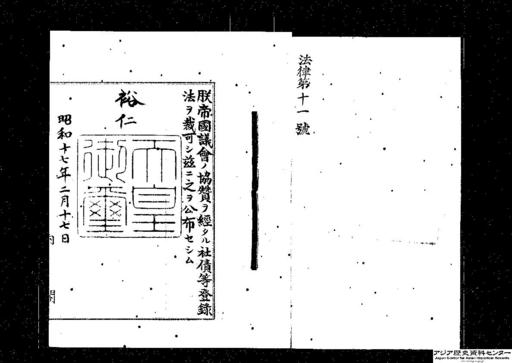 法律第十一號
朕帝國議會ノ協贊ヲ經タル社債等登錄
法ヲ裁可シ茲ニ之ヲ公布セシム
裕仁
天皇
御璽
昭和十七年二月十七日
内閣
アジア歴史資料センター
Japan Center for Asian Historical Records